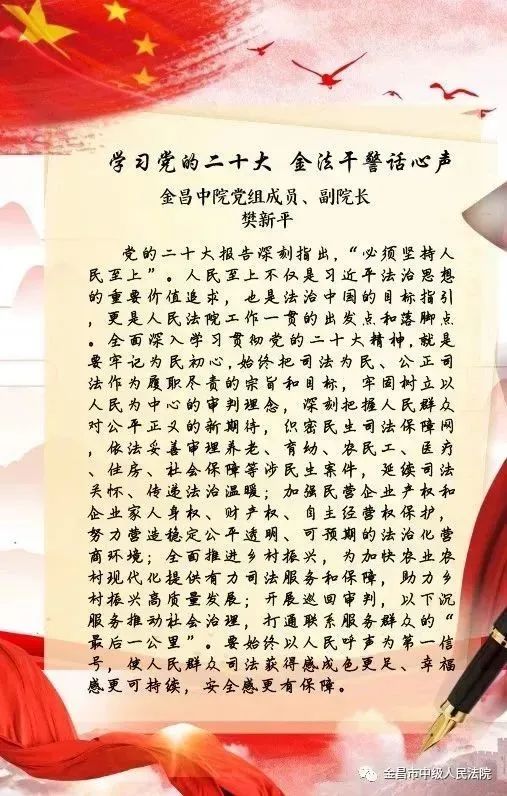 学习党的二十大 金法干警话心声
金昌中院党组成员、副院长
樊新平
党的二十大报告深刻指出，“必须坚持人
民至上”。人民至上不仅是习近平法治思想
的重要价值追求，也是法治中国的目标指引
，更是人民法院工作一贯的出发点和落脚点
。全面深入学习贯彻党的二十大精神，就是
要牢记为民初心，始终把司法为民、公正司
法作为履职尽责的宗旨和目标，牢固树立以
人民为中心的审判理念，深刻把握人民群众
对公平正义的新期待，织密民生司法保障网
，依法妥善审理养老、育幼、农民工、医疗
、住房、社会保障等涉民生案件，延续司法
关怀、传递法治温暖；加强民营企业产权和
企业家人身权、财产权、自主经营权保护，
努力营造稳定公平透明、可预期的法治化营
商环境；全面推进乡村振兴，为加快农业农
村现代化提供有力司法服务和保障，助力乡
村振兴高质量发展；开展巡回审判，以下沉
服务推动社会治理，打通联系服务群众的“
最后一公里”。要始终以人民呼声为第一信
号，使人民群众司法获得感成色更足、幸福
感更可持续，安全感更有保障。
金昌市中级人民法院